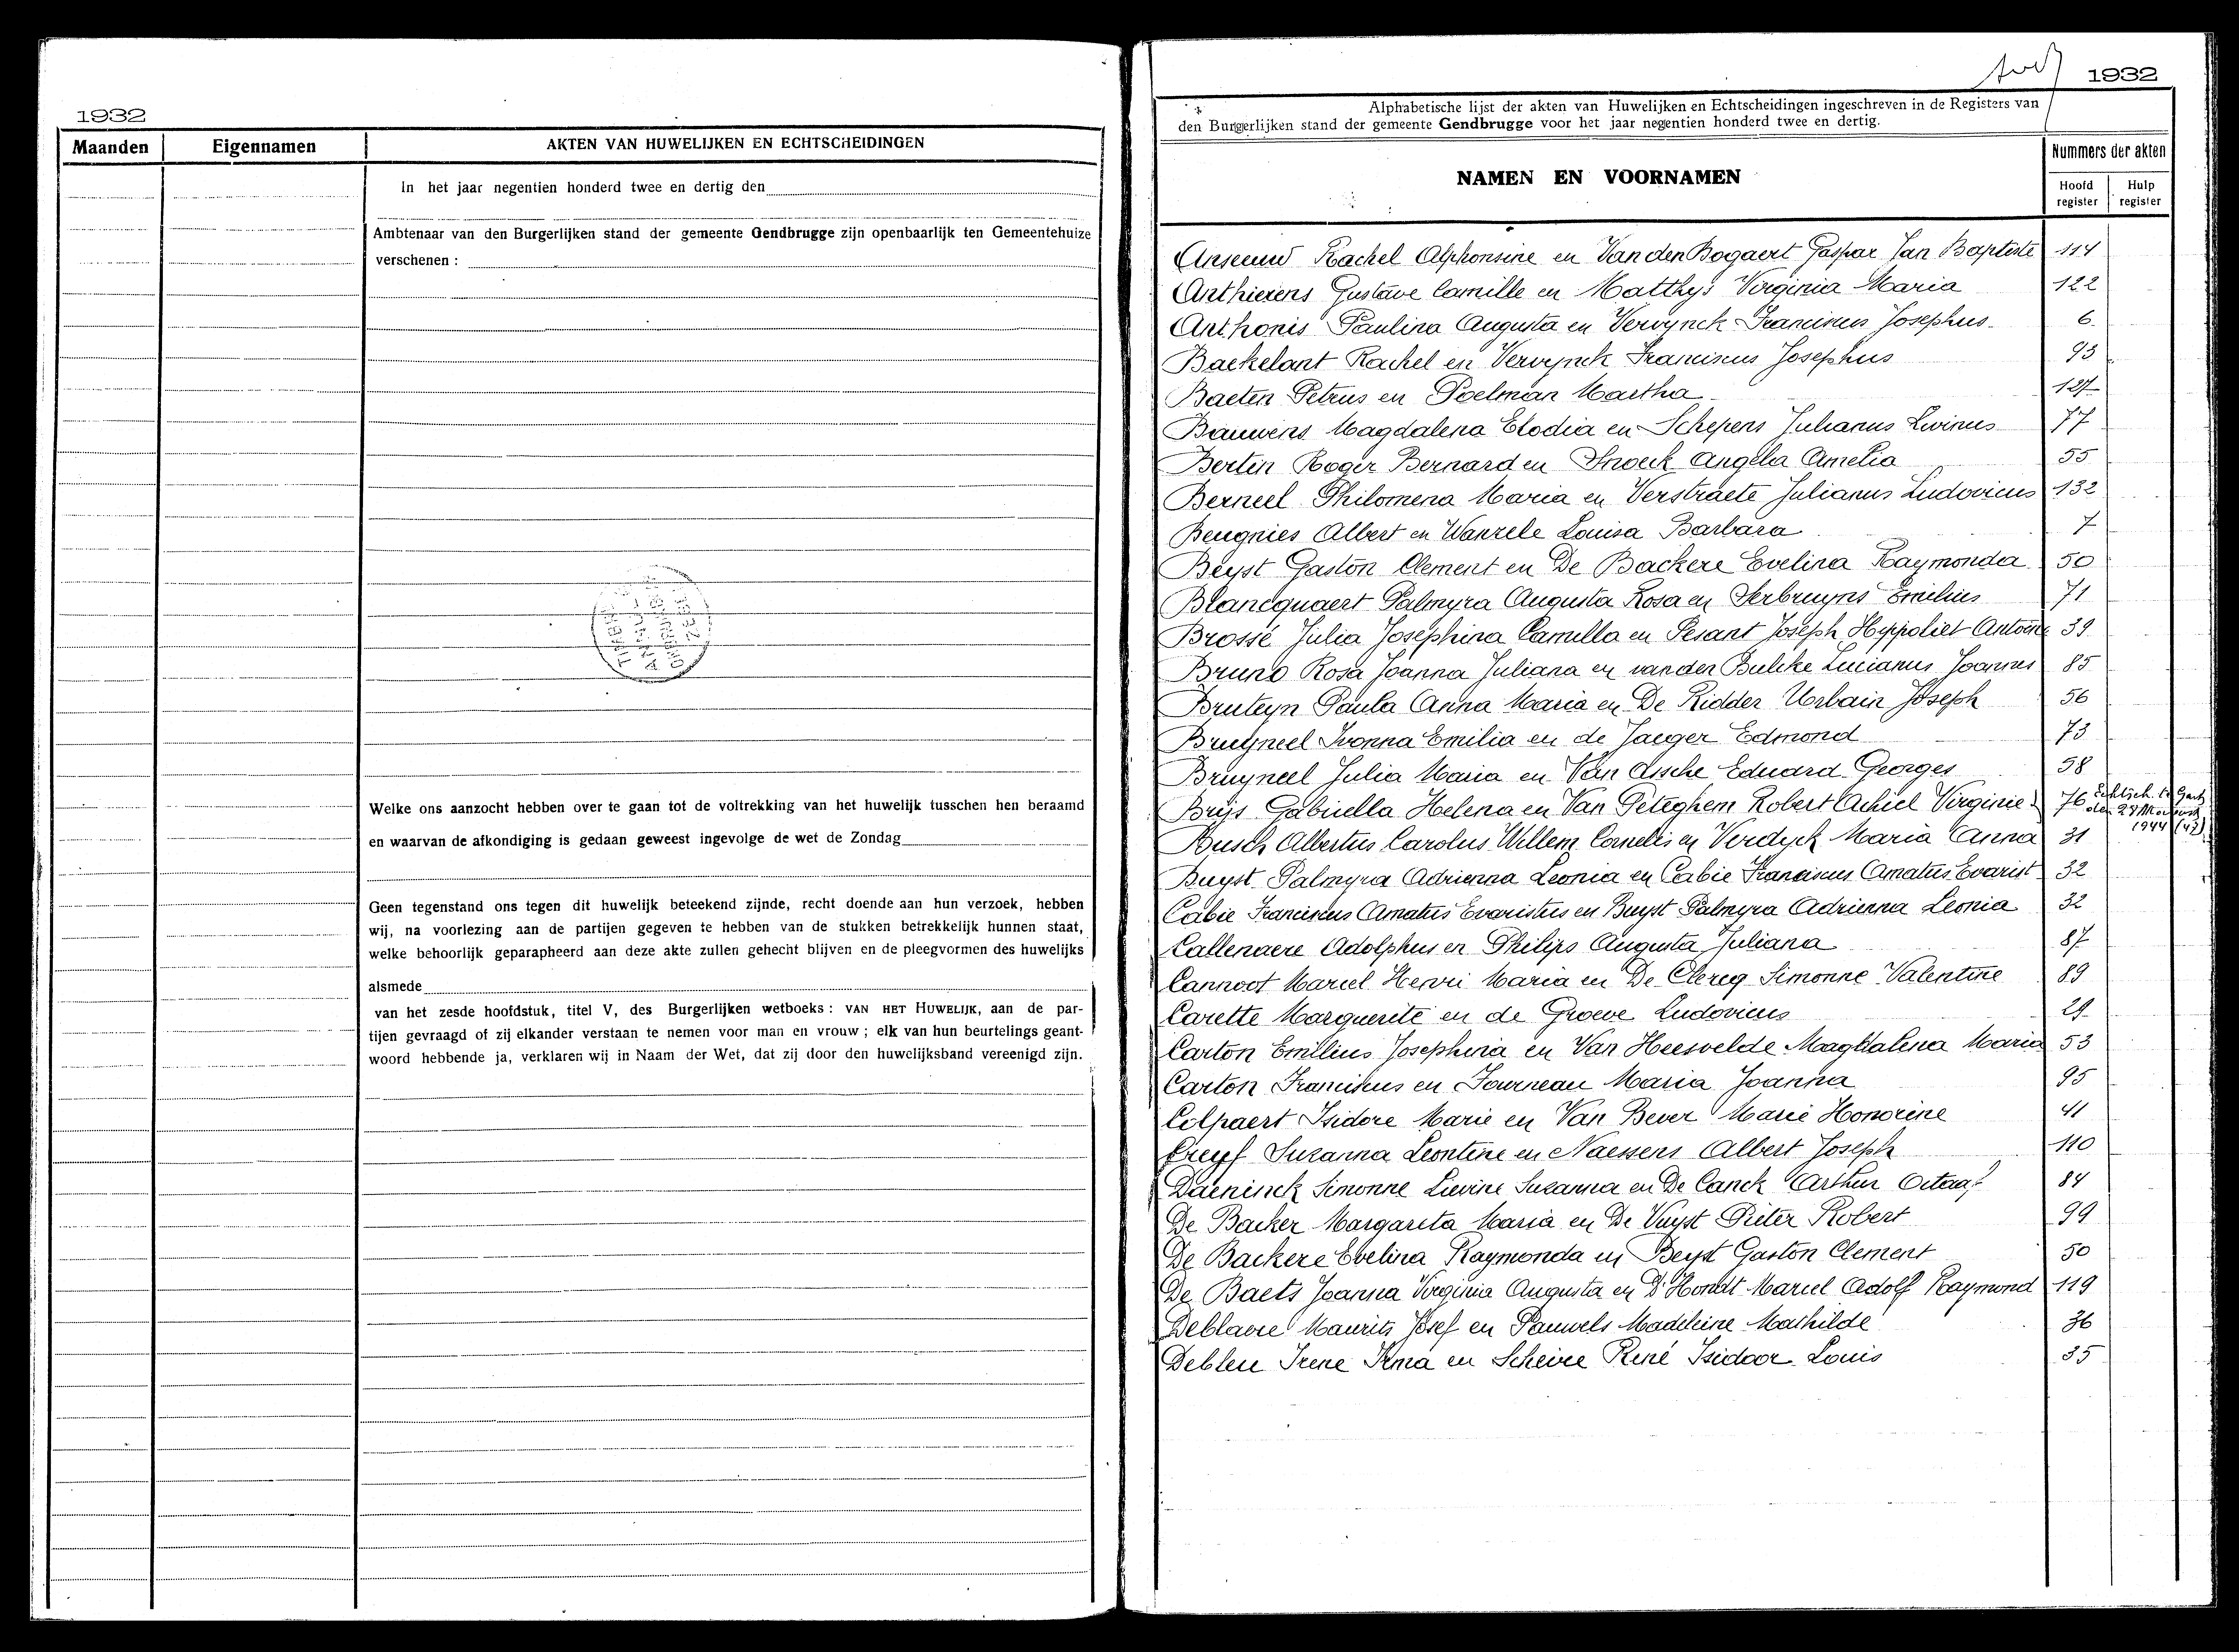 1932
Maanden Eigennamen AKTEN VAN HUWELIJKEN EN ECHTSCHEIDINGEN
In het jaar negentien honderd twee en dertig den
Ambtenaar van den Burgerlijken stand der gemeente Gendbrugge zijn openbaarlijk ten Gemeentehuize
verschenen :
Welke ons aanzocht hebben over te gaan tot de voltrekking van het huwelijk tusschen hen beraamd
en waarvan de afkondiging is gedaan geweest ingevolge de wet de Zondag
Geen tegenstand ons tegen dit huwelijk beteekend zijnde, recht doende aan hun verzoek, hebben
wij, na voorlezing aan de partijen gegeven te hebben van de stukken betrekkelijk hunnen staat,
welke behoorlijk geparapheerd aan deze akte zullen gehecht blijven en de pleegvormen des huwelijks
alsmede
van het zesde hoofdstuk, titel V, des Burgerlijken wetboeks : VAN HET HUWELIJK, aan de par-
tijen gevraagd of zij elkander verstaan te nemen voor man en vrouw ; elk van hun beurtelings geant-
woord hebbende ja, verklaren wij in Naam der Wet, dat zij door den huwelijksband vereenigd zijn.
1932
Alphabetische lijst der akten van Huwelijken en Echtscheidingen ingeschreven in de Registers van
den Burgerlijken stand der gemeente Gendbrugge voor het jaar negentien honderd twee en dertig.
NAMEN EN VOORNAMEN
Nummers der akten
Hoofd register Hulp register
Anseeuw Rachel Alphonsine en Van den Bogaert Gaspar Jan Baptiste 114
Anthierens Gustave Camille en Matthys Virginia Maria 122
Anthonis Paulina Augusta en Vervynck Franciscus Josephus 6
Baekelant Rachel en Vervynck Franciscus Josephus 93
Baeten Petrus en Poelman Martha 127
Bauwens Magdalena Elodia en Schepens Julianus Livinus 77
Bertin Roger Bernard en Snoeck Angela Amelia 55
Berneel Philomena Maria en Verstraete Julianus Ludovicus 132
Beugnies Albert en Wanzele Louisa Barbara 7
Beyst Gaston Clement en De Backere Evelina Raymonda 50
Blancquaert Palmyra Augusta Rosa en Serbruyns Emilius 71
Brossé Julia Josephina Camilla en Pesant Joseph Hyppoliet Antoine 39
Bruno Rosa Joanna Juliana en van den Bulcke Lucianus Joannes 85
Bruteyn Paula Anna Maria en De Ridder Urbain Joseph 56
Bruyneel Ivonna Emilia en de Jaeger Edmond 73
Bruyneel Julia Maria en Van Assche Eduard Georges 58
Brijs Gabriella Helena en Van Peteghem Robert Achiel Virginie 76 Echtsch. te Gent
den 1944 (42)
Busch Albertus Carolus Willem Cornelis en Verdyck Maria Anna 31
Buyst Palmyra Adrienna Leonia en Cabie Franciscus Amatus Evarist 32
Cabie Franciscus Amatus Evaristus en Buyst Palmyra Adrienna Leonia 32
Callenaere Adolphus en Philips Augusta Juliana 87
Cannoot Marcel Henri Maria en De Clercq Simonne Valentine 89
Carette Marguerite en de Groeve Ludovicus 29
Carton Emilius Josephina en Van Heesvelde Magdalena Maria 53
Carton Franciskus en Fourneau Maria Joanna 95
Colpaert Isidore Marie en Van Bever Marie Honorine 41
Creyf Suzanna Leontine en Naessens Albert Joseph 110
Daeninck Simonne Lievine Suzanna en De Canck Arthur Octaaf 84
De Backer Margareta Maria en De Vuyst Pieter Robert 99
De Backere Evelina Raymonda en Beyst Gaston Clement 50
De Baets Joanna Virginia Augusta en D'Hondt Marcel Adolf Raymond 119
Deblaere Maurits Josef en Pauwels Madeleine Mathilde 36
Debleu Irene Irma en Scheire René Isidoor Louis 35